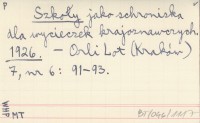 P
Szkoły jako schroniska
dla wycieczek krajoznawczych.
1926. – Orli Lot (Kraków)
7, nr 6: 91-93.
WHP
MT